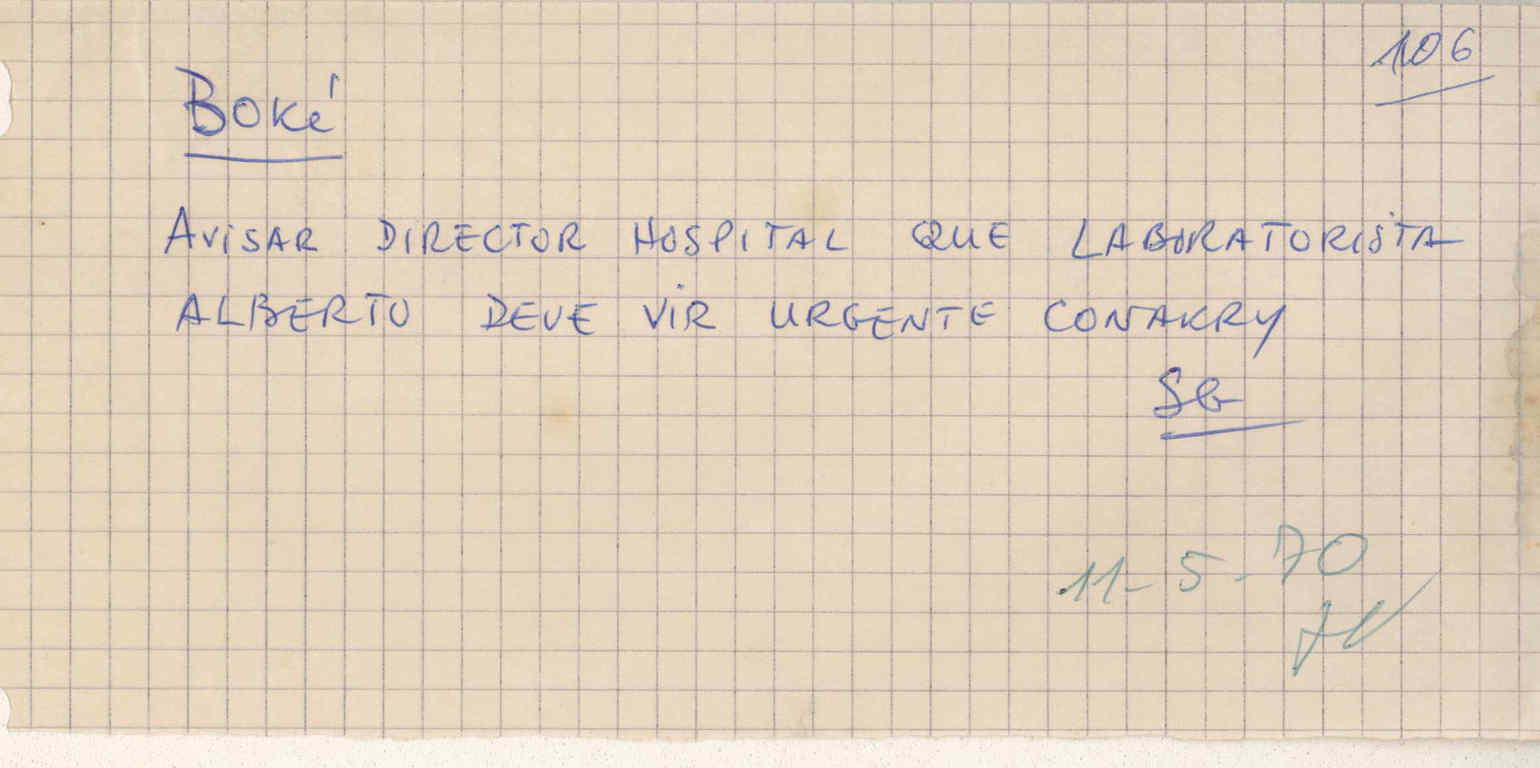 106
Boké
AVISAR DIRECTOR HOSPITAL QUE LABORATORISTA
ALBERTO DEVE VIR URGENTE CONAKRY
SG
11-5-70